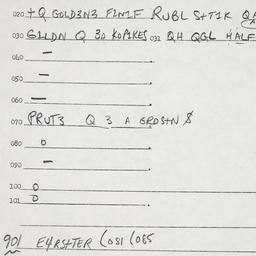 020 + Q GOLD3N3 F1N1F RUBL S+T1K Q
030 G1LDN Q 30 KOP1KES 032 QH QGL HALF
040 — .
050 — .
060 — .
070 PRUT3 Q 3 A GRDS+N $
080 0 .
090 — .
100 0 .
101 0 .
901 E4RS+TER (081 (085